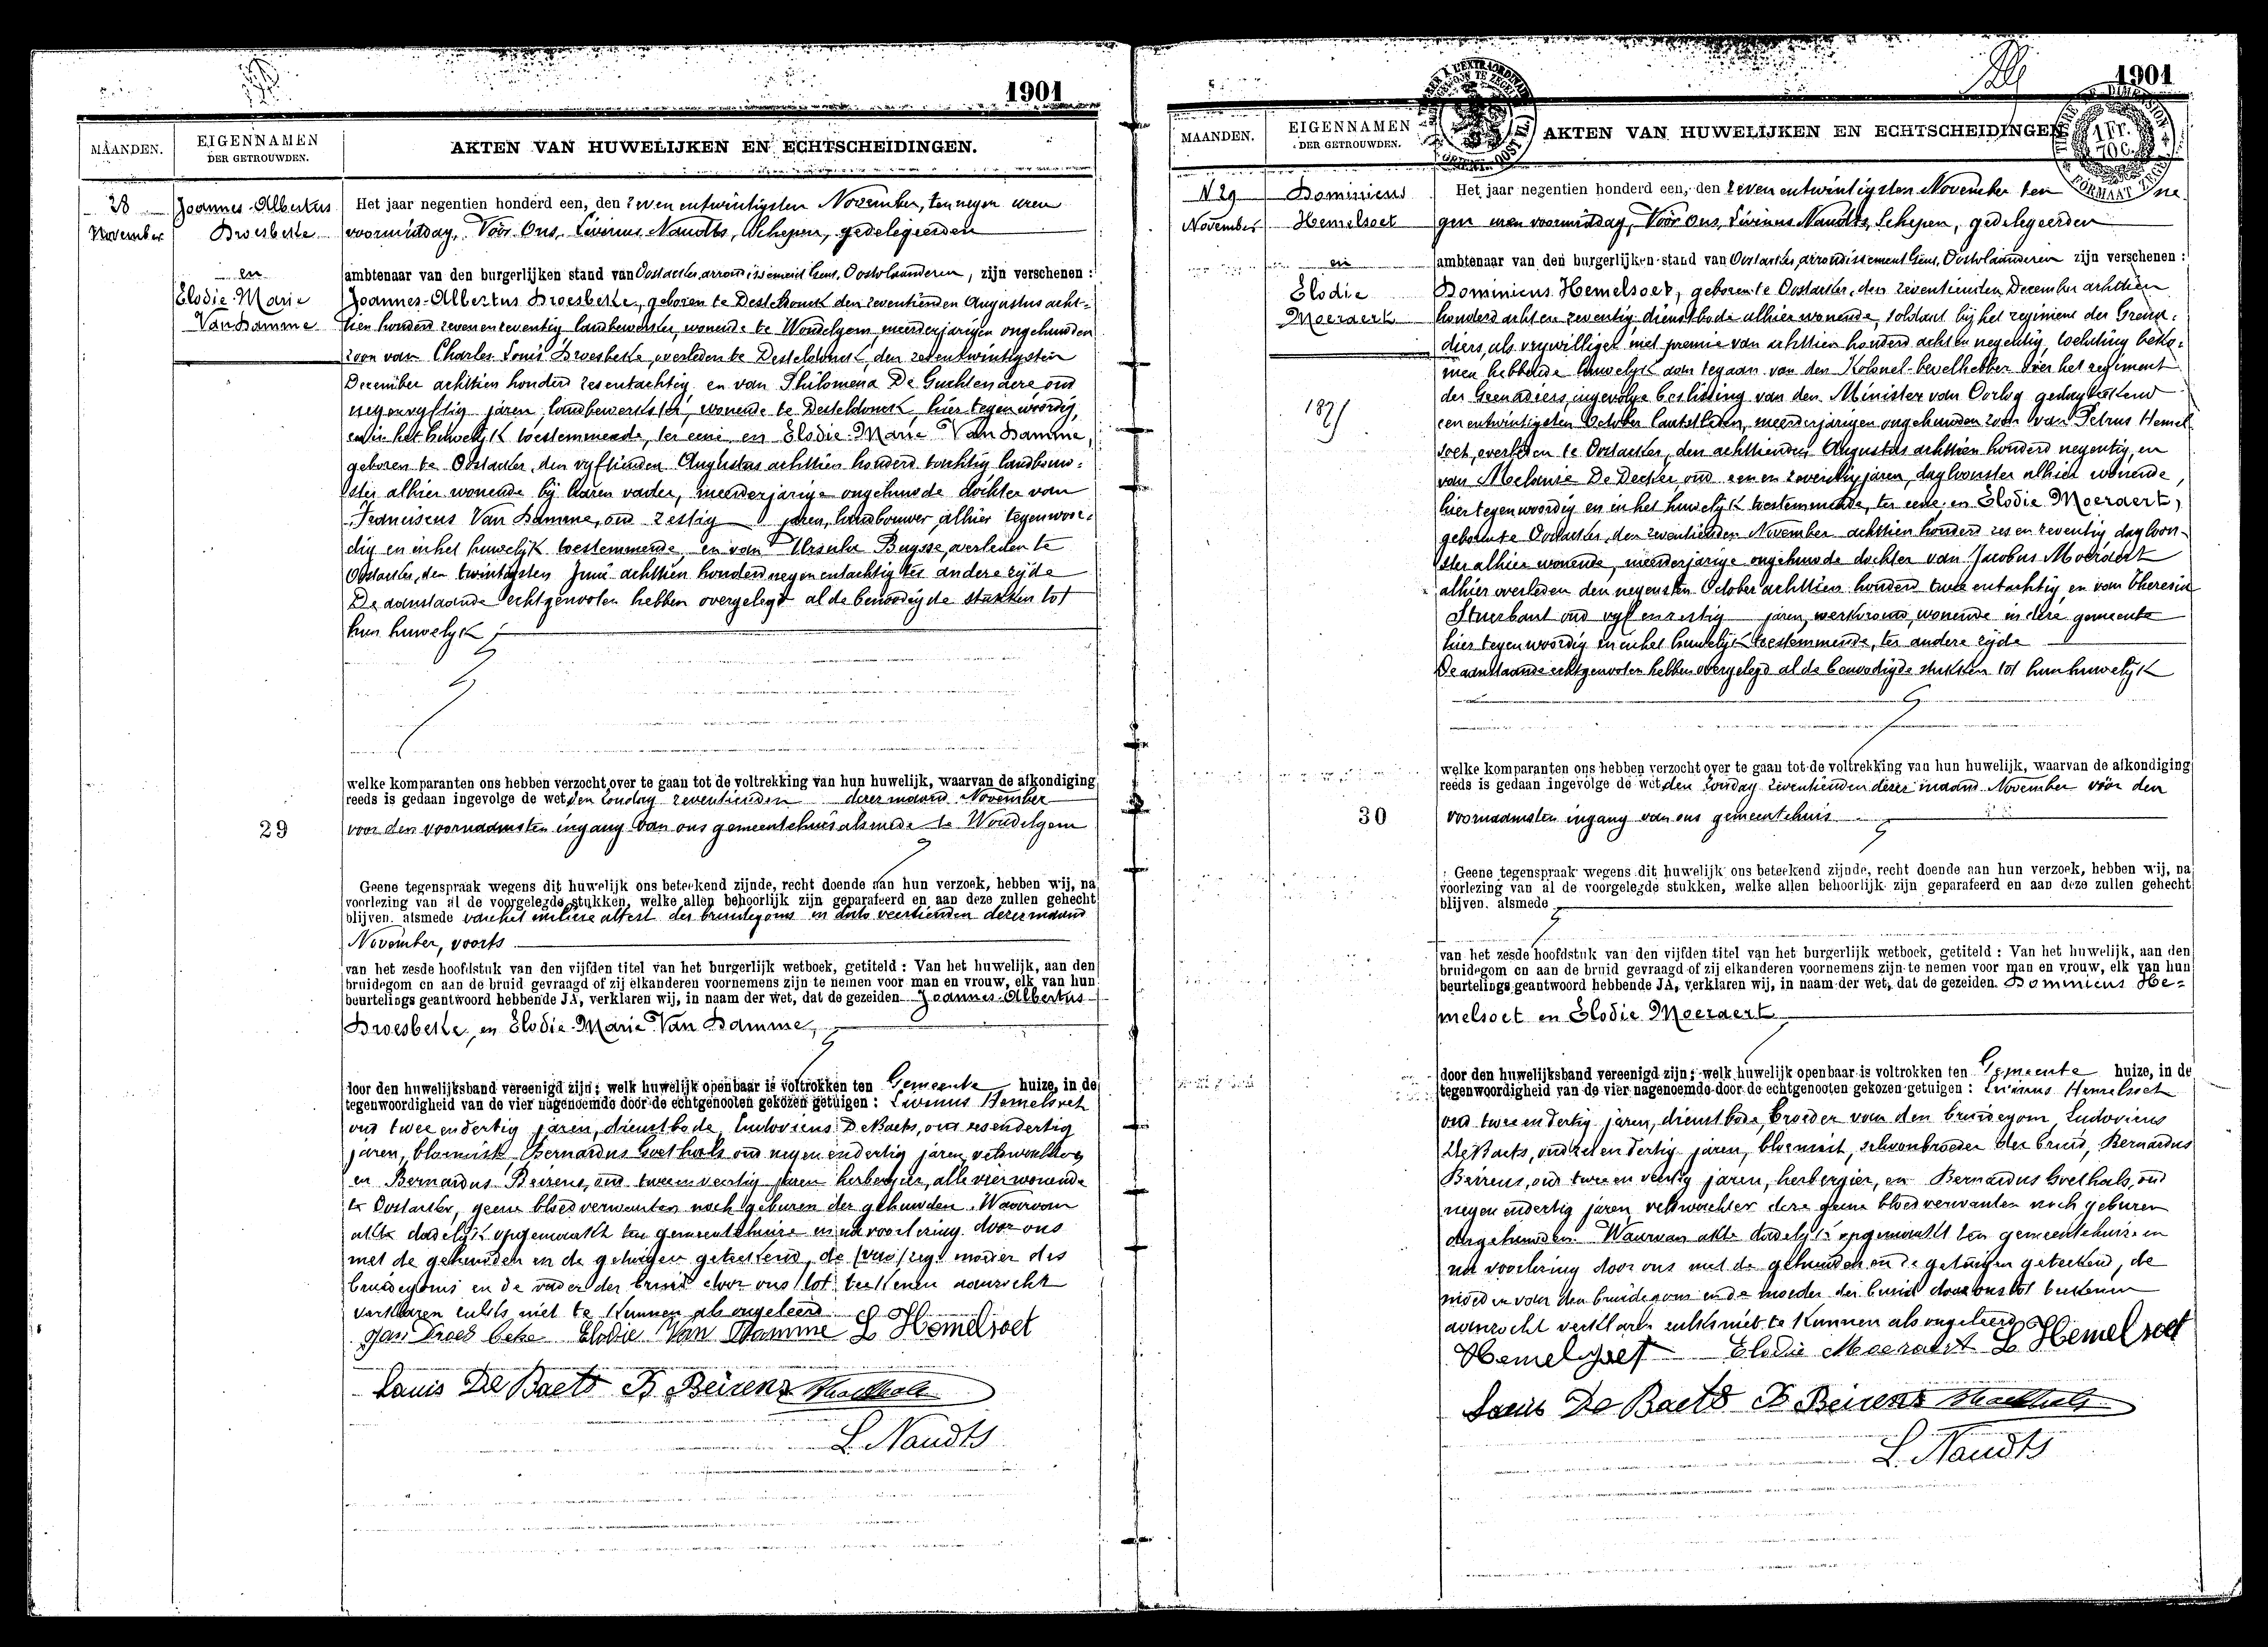 1901
MAANDEN.
EIGENNAMEN
DER GETROUWDEN.
AKTEN VAN HUWELIJKEN EN ECHTSCHEIDINGEN.
28
November
Joannes-Albertus
Droesbeke
en
Elodie-Marie
Van Damme
Het jaar negentien honderd een, den zeven entwintigsten November, ten negen uren
voormiddag, Vóór Ons, Livinus Naudts, Schepen, gedelegeerden
ambtenaar van den burgerlijken stand van Oostacker, arrondissement Gent, Oostvlaanderen, zijn verschenen :
Joannes-Albertus Droesbeke, geboren te Desteldonck den zeventienden Augustus acht-
tien honderd zevenenzeventig landbewerker, wonende te Wondelgem, meerderjarigen ongehuwden
zoon van Charles Louis Droesbeke, overleden te Desteldonck, den zesentwintigsten
December achttien honderd zesentachtig en van Philomena De Guchtenaere oud
negenvyftig jaren, landbewerkster, wonende te Desteldonck hier tegenwoordig,
en in het huwelyk toestemmende, ter eene en Elodie-Marie Van Damme,
geboren te Oostacker, den vyftienden Augustus achttien honderd tachtig landbouw-
ster alhier wonende bij haren vader, meerderjarige ongehuwde dochter van
Franciscus Van Damme, oud zestig jaren, landbouwer alhier tegenwoor-
dig en in het huwelijk toestemmende, en van Ursula Buysse, overleden te
Oostacker, den twintigsten Juni achttien honderd negen entachtig ter andere zijde
De aanstaande echtgenooten hebben overgelegd al de benoodigde stukken tot
hun huwelyk ;
welke komparanten ons hebben verzocht over te gaan tot de voltrekking van hun huwelijk, waarvan de afkondiging
reeds is gedaan ingevolge de wet, den Zondag zeventienden dezer maand November
29
voor den voornaamsten ingang van ons gemeentehuis alsmede te Wondelgem
Geene tegenspraak wegens dit huwelijk ons beteekend zijnde, recht doende aan hun verzoek, hebben wij, na
voorlezing van al de voorgelegde stukken, welke allen behoorlijk zijn geparafeerd en aan deze zullen gehecht
blijven. alsmede van het militie attest des bruidegoms in dato veertienden dezer maand
November, voorts
van het zesde hoofdstuk van den vijfden titel van het burgerlijk wetboek, getiteld : Van het huwelijk, aan den
bruidegom en aan de bruid gevraagd of zij elkanderen voornemens zijn te nemen voor man en vrouw, elk van hun
beurtelings geantwoord hebbende JA, verklaren wij, in naam der wet, dat de gezeiden Joannes-Albertus
Droesbeke, en Elodie-Marie Van Damme,
door den huwelijksband vereenigd zijn ; welk huwelijk openbaar is voltrokken ten Gemeente huize, in de
tegenwoordigheid van de vier nagenoemde door de echtgenooten gekozen getuigen : Livinus Hemelsoet
oud twee endertig jaren, dienstbode, Ludovicus De Baets, oud zesendertig
jaren, blomist, Bernardus Goethals oud negen endertig jaren, veldwachter,
en Bernardus Beirens, oud tweeen veertig jaren herbergier, alle vier wonende
te Oostacker, geene bloedverwanten noch geburen der gehuwden. Waarvan
akte dadelijk opgemaakt ten gemeentehuize en na voorlezing door ons
met de gehuwden en de getuigen geteekend, de moeder des
bruidegoms en de vader der bruid door ons tot teekenen aanzocht
verklaren zulks niet te kunnen als ongeleerd
Jan Droesbeke Elodie Van Damme L Hemelsoet
Louis De Baets B Beirens BGoethals
L. Naudts
1901
MAANDEN.
EIGENNAMEN
DER GETROUWDEN.
AKTEN VAN HUWELIJKEN EN ECHTSCHEIDINGEN
1 Fr.
70 C.
N 29
November
Dominicus
Hemelsoet
en
Elodie
Moeraert
Het jaar negentien honderd een, den zeven entwintigsten November ten ne
gen uren voormiddag, Vóór Ons, Livinus Naudts, Schepen, gedelegeerden
ambtenaar van den burgerlijken stand van Oostacker, arrondissement Gent, Oostvlaanderen zijn verschenen :
Dominicus Hemelsoet, geboren te Oostacker, den zeventienden December achttien
honderd achten zeventig, dienstbode alhier wonende, soldaat bij het regiment der Grena-
diers, als vrywilliger met premie van achttien honderd achten negentig, toelating beko-
men hebbende huwelyk aan tegaan van den Kolonel-bevelhebber over het regiment
der Grenadiers, ingevolge beslissing van den Minister van Oorlog gedagteekend
een entwintigsten October laatstleden, meerderjarigen ongehuwden zoon van Petrus Hemel
soet, overleden te Oostacker, den achttienden Augustus achttien honderd negentig, en
van Melanie De Decker oud een en zeventig jaren, dagloonster alhier wonende,
hier tegenwoordig en in het huwelyk toestemmende, ter eene, en Elodie Moeraert,
geboren te Oostacker, den zeventienden November achttien honderd zes en zeventig dagloon-
ster alhier wonende, meerderjarige ongehuwde dochter van Jacobus Moeraert
alhier overleden den negensten October achttien honderd twee entachtig, en van Theresia
Stuerbaut oud vyf enzestig jaren, werkvrouw, wonende in deze gemeente
hier tegenwoordig en in het huwelyk toestemmende, ter andere zijde
De aanstaande echtgenooten hebben overgelegd al de benoodigde stukken tot hun huwelyk
welke komparanten ons hebben verzocht over te gaan tot de voltrekking van hun huwelijk, waarvan de afkondiging
reeds is gedaan ingevolge de wet, den Zondag zeventienden dezer maand November vóór den
30
voornaamsten ingang van ons gemeentehuis
Geene tegenspraak wegens dit huwelijk ons beteekend zijnde, recht doende aan hun verzoek, hebben wij, na
voorlezing van al de voorgelegde stukken, welke allen behoorlijk zijn geparafeerd en aan deze zullen gehecht
blijven. alsmede
van het zesde hoofdstuk van den vijfden titel van het burgerlijk wetboek, getiteld : Van het huwelijk, aan den
bruidegom en aan de bruid gevraagd of zij elkanderen voornemens zijn te nemen voor man en vrouw, elk van hun
beurtelings geantwoord hebbende JA, verklaren wij, in naam der wet, dat de gezeiden Dominicus He-
melsoet en Elodie Moeraert
door den huwelijksband vereenigd zijn ; welk huwelijk openbaar is voltrokken ten Gemeente huize, in de
tegenwoordigheid van de vier nagenoemde door de echtgenooten gekozen getuigen : Livinus Hemelsoet
oud twee endertig jaren, dienstbode, broeder van den bruidegom, Ludovicus
De Baets, oud zes en dertig jaren, bloemist, schoonbroeder der bruid, Bernardus
Beirens, oud twee en veertig jaren, herbergier, en Bernardus Goethals, oud
negen endertig jaren veldwachter deze geene bloedverwanten noch geburen
der gehuwden. Waarvan akte dadelyk opgemaakt ten gemeentehuize en
na voorlezing door ons met de gehuwden en de getuigen geteekend, de
moeder van den bruidegom en de moeder der bruid door ons tot teekenen
aanzocht verklaren zulks niet te kunnen als ongeleerd
Hemelsoet Elodie Moeraert L Hemelsoet
Louis De Baets B Beirens BGoethals
L. Naudts